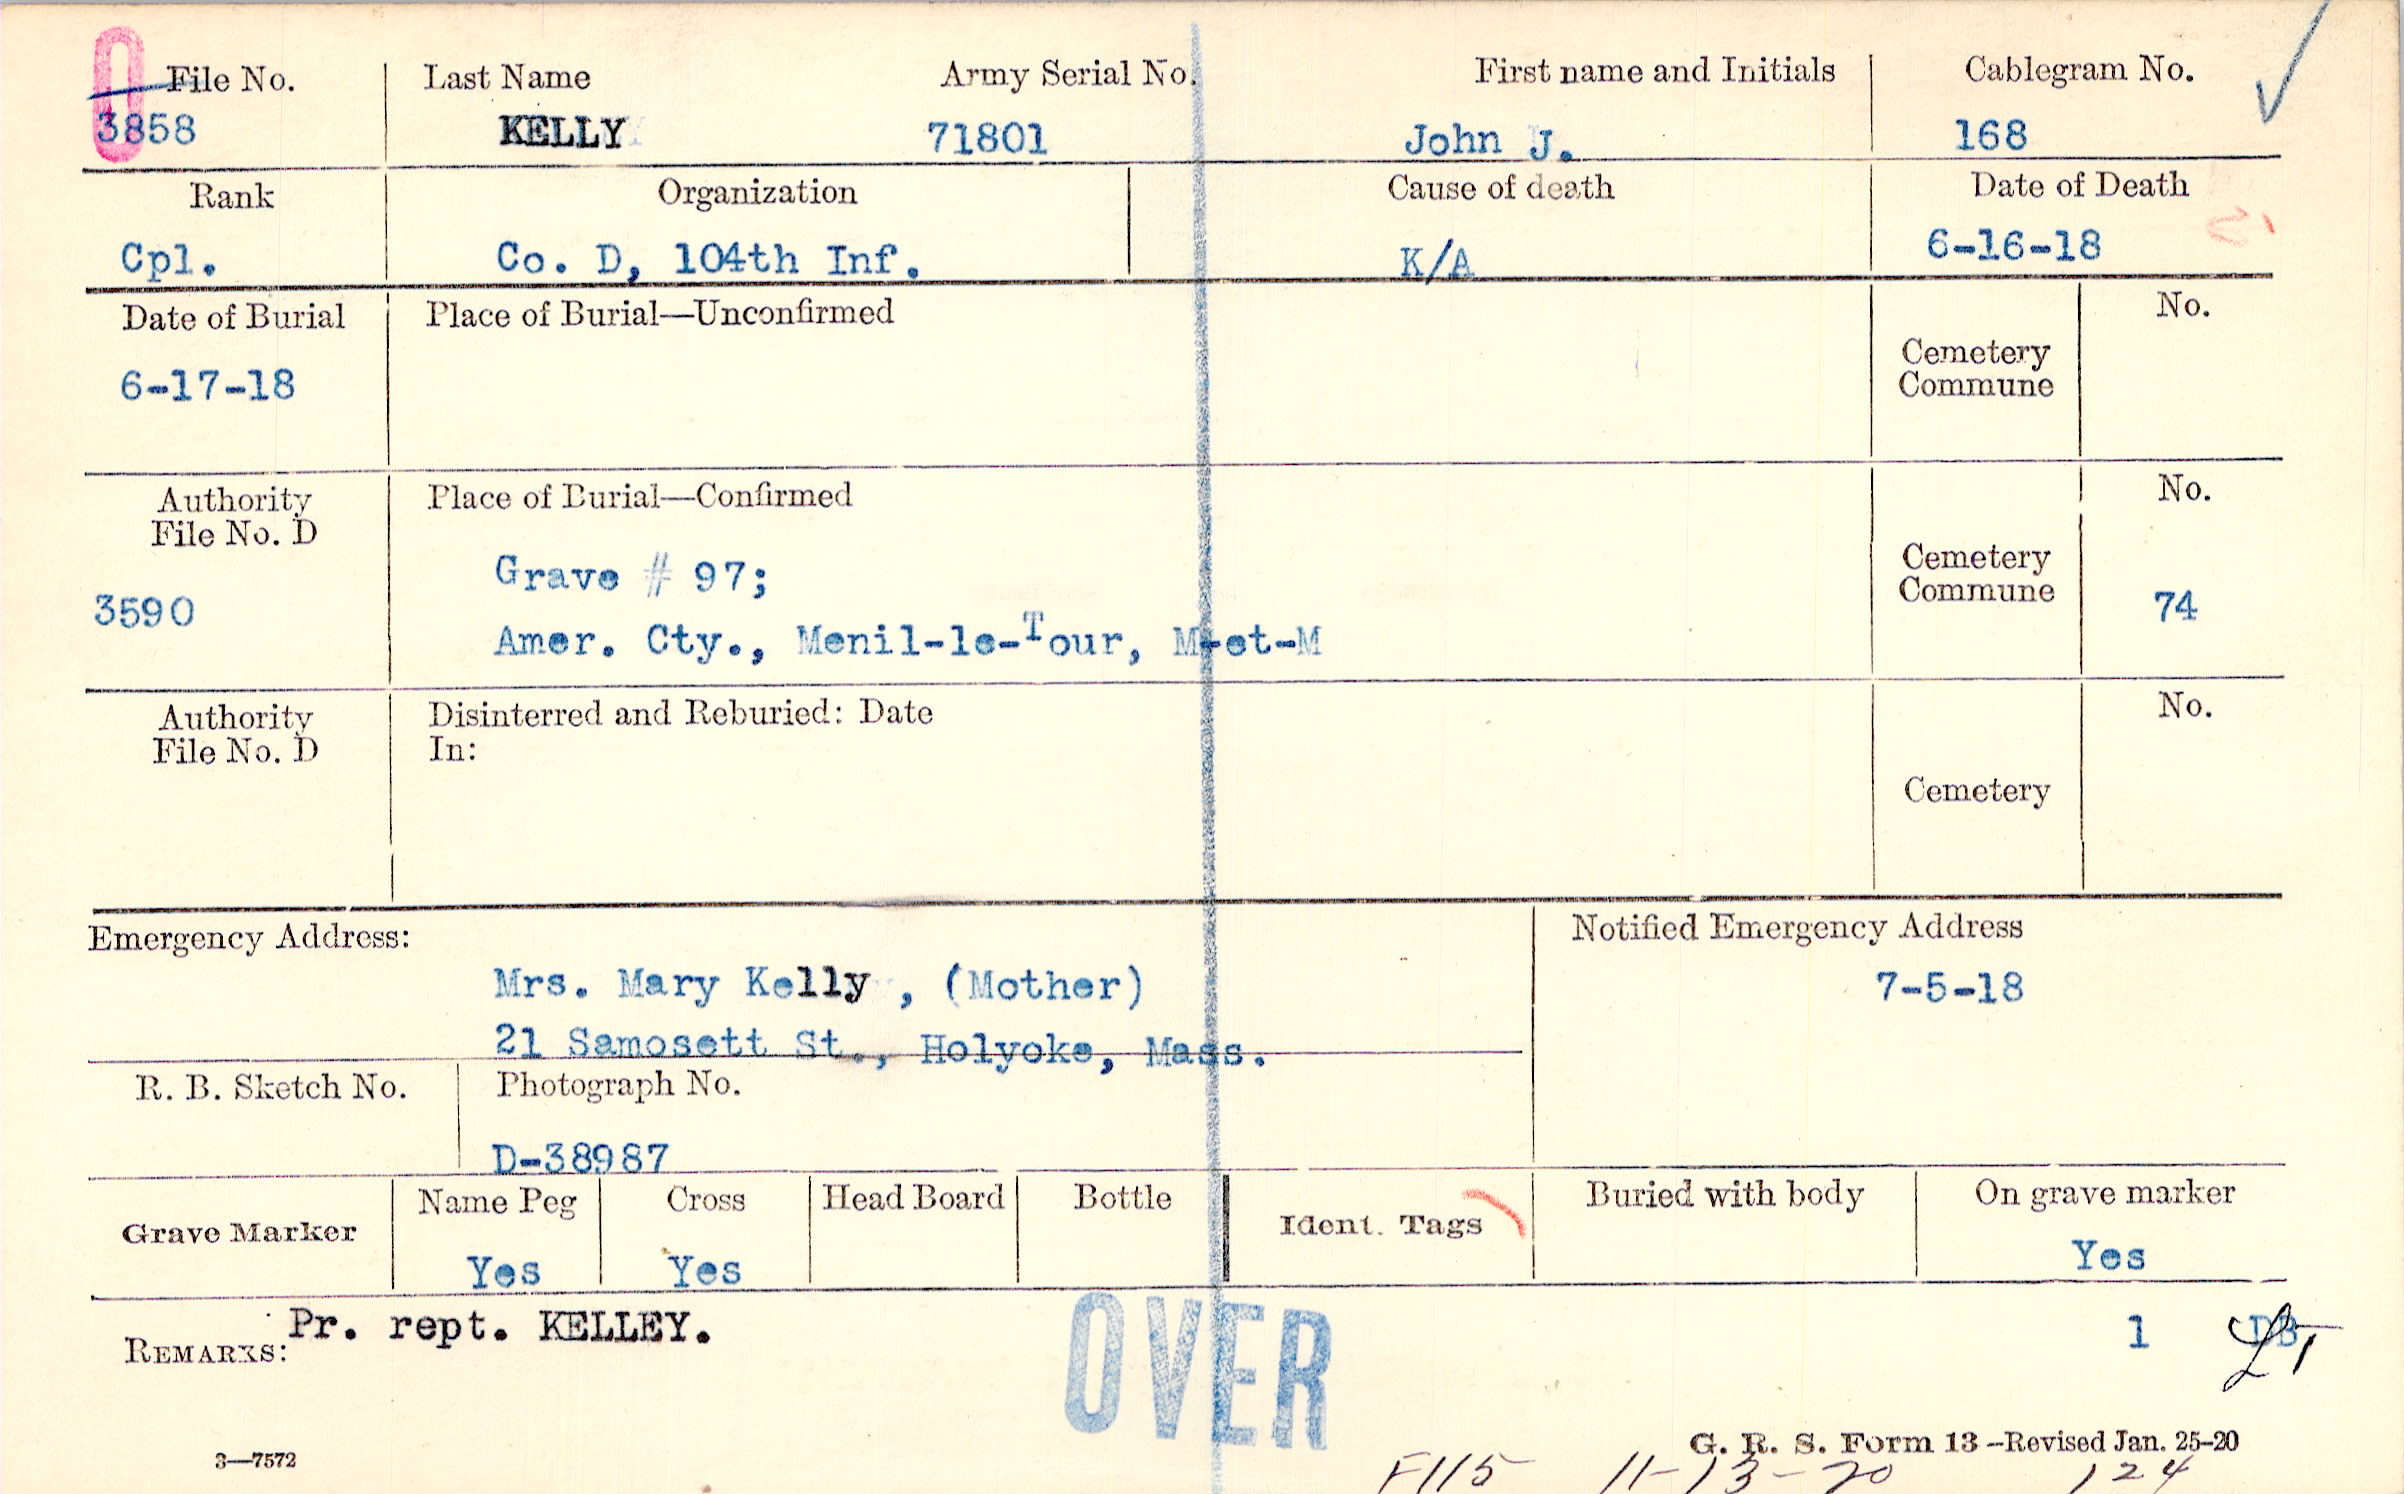 File No. Last Name Army Serial No. First name and Initials Cablegram No.
3858 KELLY 71801 John J. 168
Rank Organization Cause of death Date of Death
Cpl. Co. D, 104th Inf. K/A 6-16-18
Date of Burial Place of Burial—Unconfirmed No.
6-17-18 Cemetery
Commune
Authority Place of Burial—Confirmed No.
File No. D
3590 Grave # 97; Cemetery
Commune 74
Amer. Cty., Menil-le-Tour, M-et-M
Authority Disinterred and Reburied: Date No.
File No. D In:
Cemetery
Emergency Address: Notified Emergency Address
Mrs. Mary Kelly , (Mother) 7-5-18
21 Samosett St., Holyoke, Mass.
R. B. Sketch No. Photograph No.
D-38987
Grave Marker Name Peg Cross Head Board Bottle Ident. Tags Buried with body On grave marker
Yes Yes Yes
REMARKS: Pr. rept. KELLEY. 1
OVER
3—7572 G. R. S. Form 13 –Revised Jan. 25-20
F115 11-13-20 124